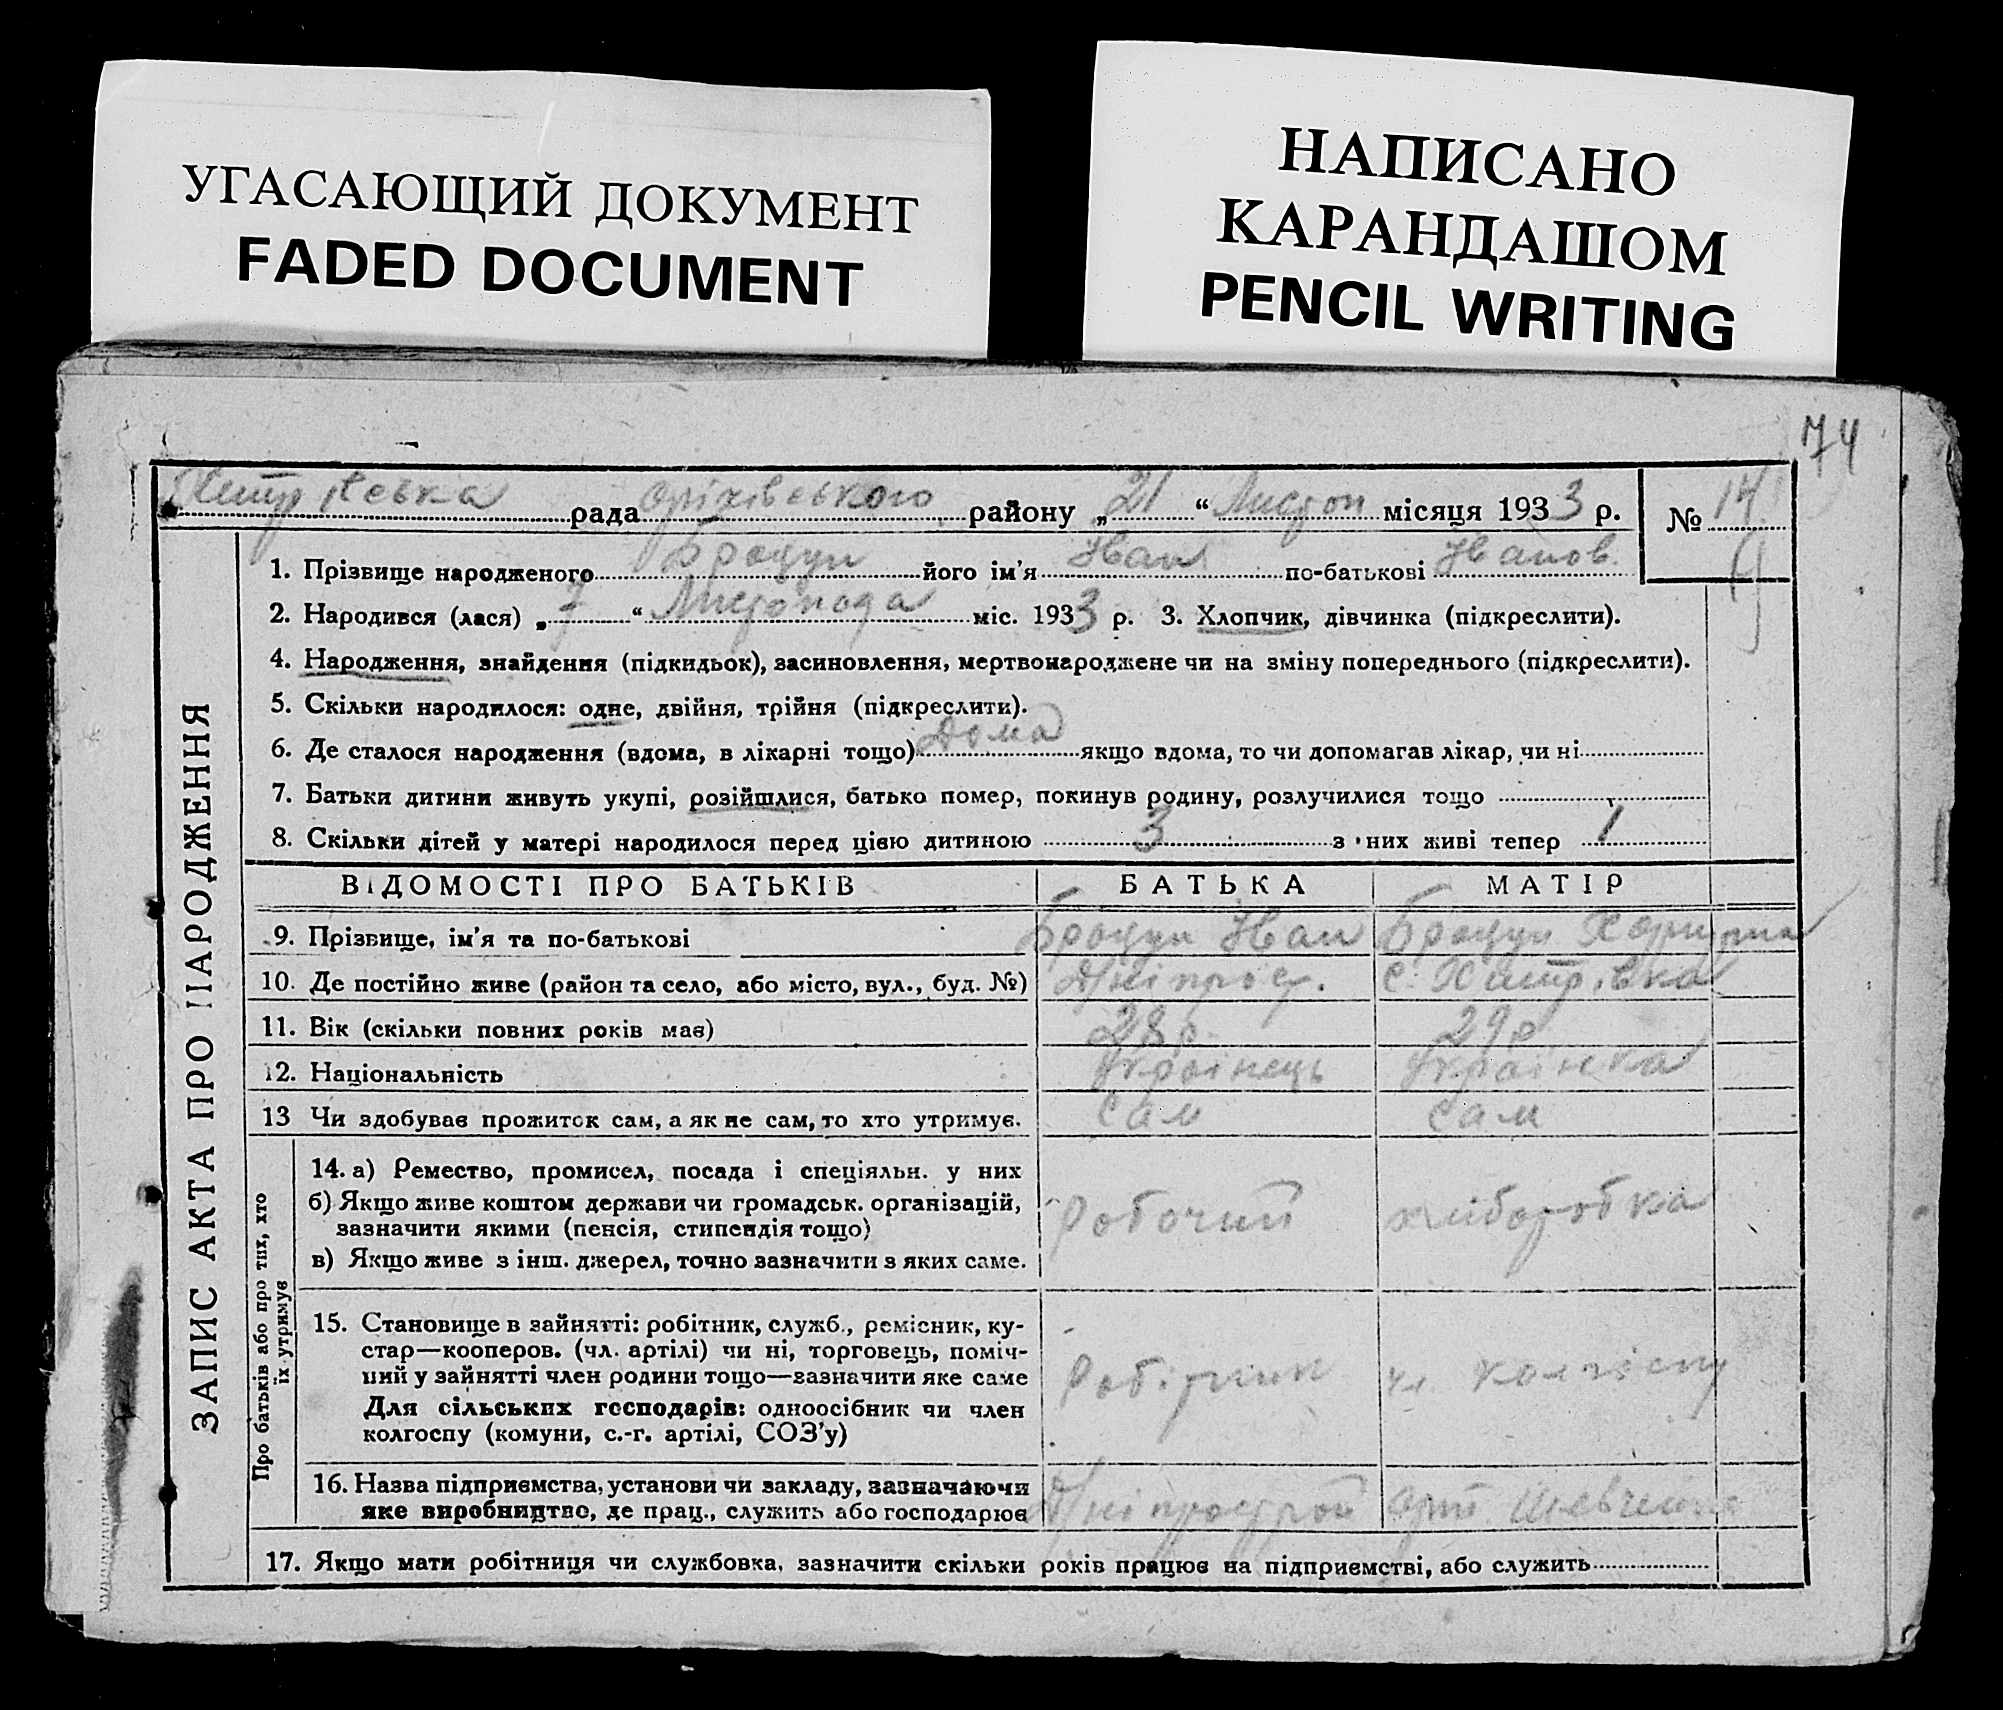 УГАСАЮЩИЙ ДОКУМЕНТ
FADED DOCUMENT
НАПИСАНО
КАРАНДАШОМ
PENCIL WRITING
74
рада Оріхівського району „ 21 “ Листоп місяця 1933 р. № 14
1. Прізвище народженого Броцун його ім’я Іван по-батькові Іванов.
2. Народився (лася) „ 7 “ Листопада міс. 1933 р. 3. Хлопчик, дівчинка (підкреслити).
4. Народження, знайдення (підкидьок), засиновлення, мертвонароджене чи на зміну попереднього (підкреслити).
5. Скільки народилося: одне, двійня, трійня (підкреслити).
6. Де сталося народження (вдома, в лікарні тощо) Дома якщо вдома, то чи допомагав лікар, чи ні
7. Батьки дитини живуть укупі, розійшлися, батько помер, покинув родину, розлучилися тощо
8. Скільки дітей у матері народилося перед цією дитиною 3 з них живі тепер 1
ЗАПИС АКТА ПРО НАРОДЖЕННЯ
ВІДОМОСТІ ПРО БАТЬКІВ БАТЬКА МАТІР
9. Прізвище, ім’я та по-батькові Броцун Іван Броцун
10. Де постійно живе (район та село, або місто, вул., буд. №) Дніпрос. с.
11. Вік (скільки повних років має) 28 р. 29 р
12. Національність Українець Українка
13 Чи здобуває прожиток сам, а як не сам, то хто утримує. Сам Сам
Про батьків або про тих, хто
їх утримує
14. а) Ремество, промисел, посада і спеціяльн. у них
б) Якщо живе коштом держави чи громадськ. організацій,
зазначити якими (пенсія, стипендія тощо)
в) Якщо живе з інш. джерел, точно зазначити з яких саме.
Робочий хліборобка
15. Становище в зайнятті: робітник, служб., ремісник, ку-
стар—кооперов. (чл. артілі) чи ні, торговець, поміч-
ний у зайнятті член родини тощо—зазначити яке саме
Для сільських господарів: одноосібник чи член
колгоспу (комуни, с.-г. артілі, СОЗ’у)
Робітник чл. колгоспу
16. Назва підприємства, установи чи закладу, зазначаючи
яке виробництво, де прац., служить або господарює
Дніпрострой Арт. Шевченка
17. Якщо мати робітниця чи службовка, зазначити скільки років працює на підприємстві, або служить